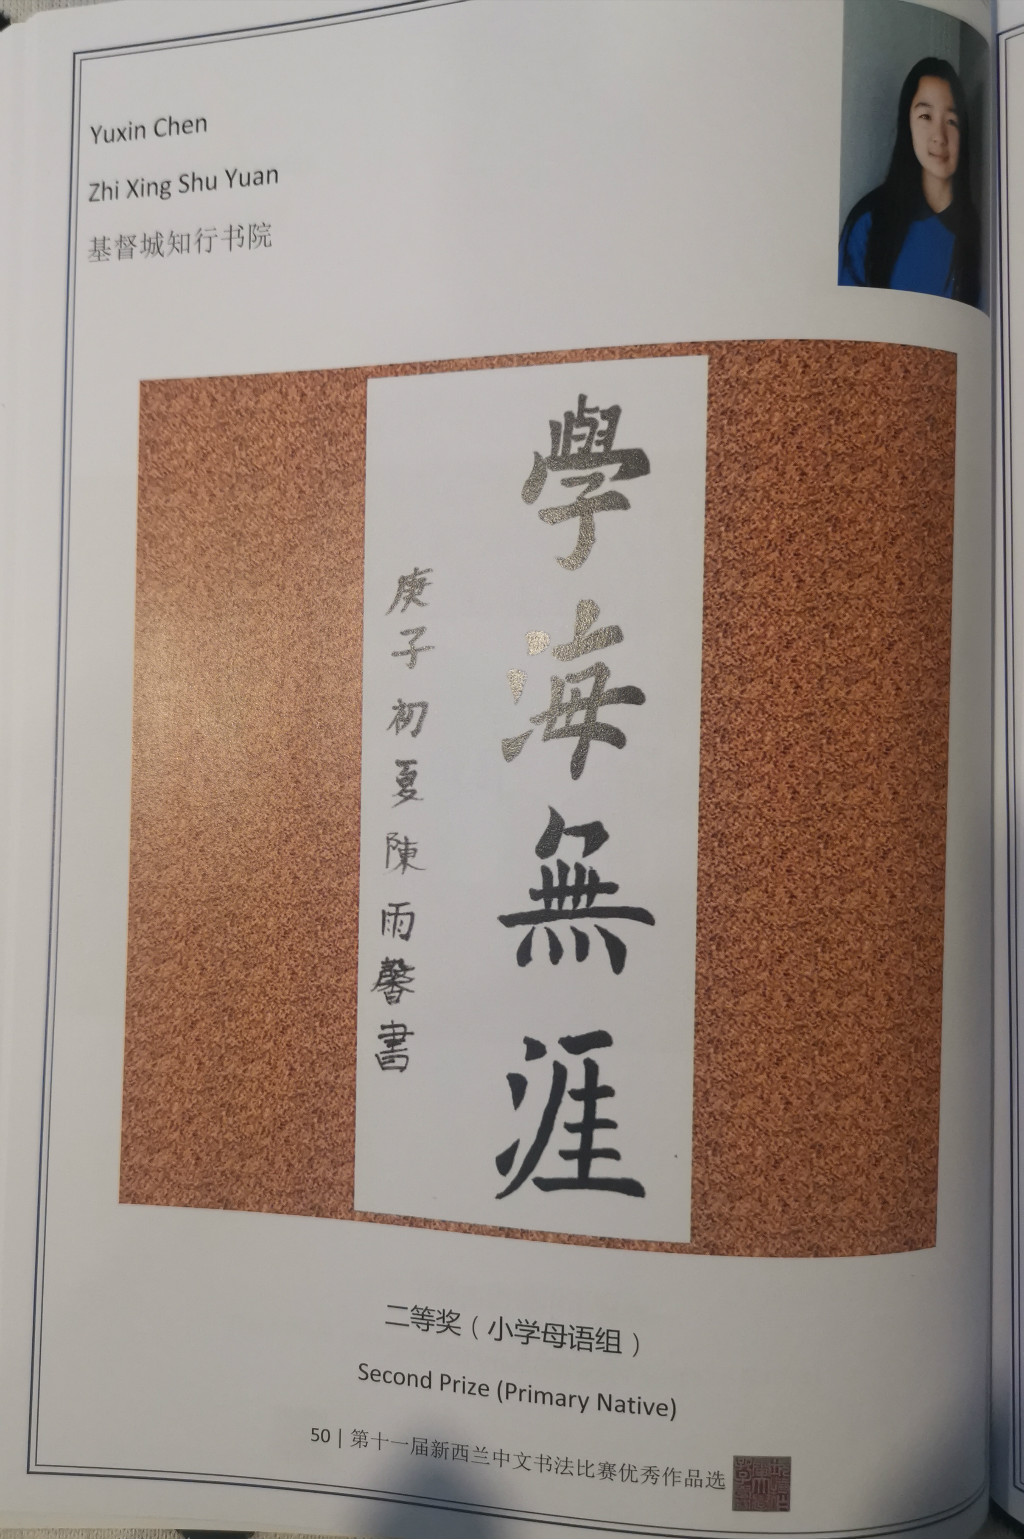 Yuxin Chen
Zhi Xing Shu Yuan
基督城知行书院
學海無涯
庚子初夏陳雨馨書
二等奖（小学母语组）
Second Prize (Primary Native)
50 | 第十一届新西兰中文书法比赛优秀作品选